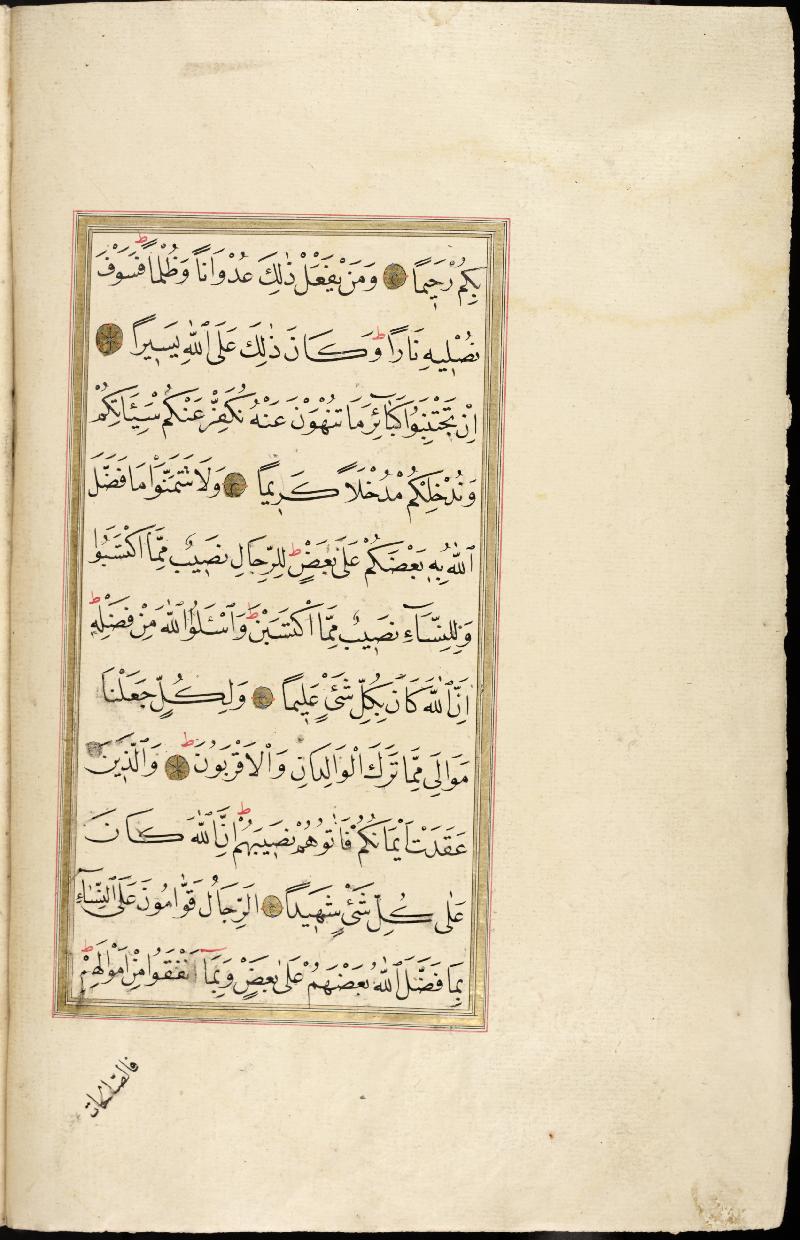 بِكُمْ رَحِيمًا وَمَنْ يَفْعَلْ ذٰلِكَ عُدْوَانًا وَظُلْمًا ط فَسَوْفَ
نُصْلِيهِ نَارًا ط وَكَانَ ذٰلِكَ عَلَى اللّٰهِ يَسِيرًا
اِنْ تَجْتَنِبُوا كَبَٓائِرَ مَا تُنْهَوْنَ عَنْهُ نُكَفِّرْ عَنْكُمْ سَيِّئَاتِكُمْ
وَنُدْخِلْكُمْ مُدْخَلًا كَرِيمًا وَلَا تَتَمَنَّوْا مَا فَضَّلَ
اللّٰهُ بِهِ بَعْضَكُمْ عَلٰى بَعْضٍ ط لِلرِّجَالِ نَصِيبٌ مِمَّا اكْتَسَبُوا
وَلِلنِّسَٓاءِ نَصِيبٌ مِمَّا اكْتَسَبْنَ ط وَاسْئَلُوا اللّٰهَ مِنْ فَضْلِهِ ط
اِنَّ اللّٰهَ كَانَ بِكُلِّ شَيْءٍ عَلِيمًا وَلِكُلٍّ جَعَلْنَا
مَوَالِيَ مِمَّا تَرَكَ الْوَالِدَانِ وَالْاَقْرَبُونَ ط وَالَّذِينَ
عَقَدَتْ اَيْمَانُكُمْ فَاٰتُوهُمْ نَصِيبَهُمْ ط اِنَّ اللّٰهَ كَانَ
عَلٰى كُلِّ شَيْءٍ شَهِيدًا الرِّجَالُ قَوَّامُونَ عَلَى النِّسَٓاءِ
بِمَا فَضَّلَ اللّٰهُ بَعْضَهُمْ عَلٰى بَعْضٍ وَبِمَٓا اَنْفَقُوا مِنْ اَمْوَالِهِمْ ط
فالصّالحات